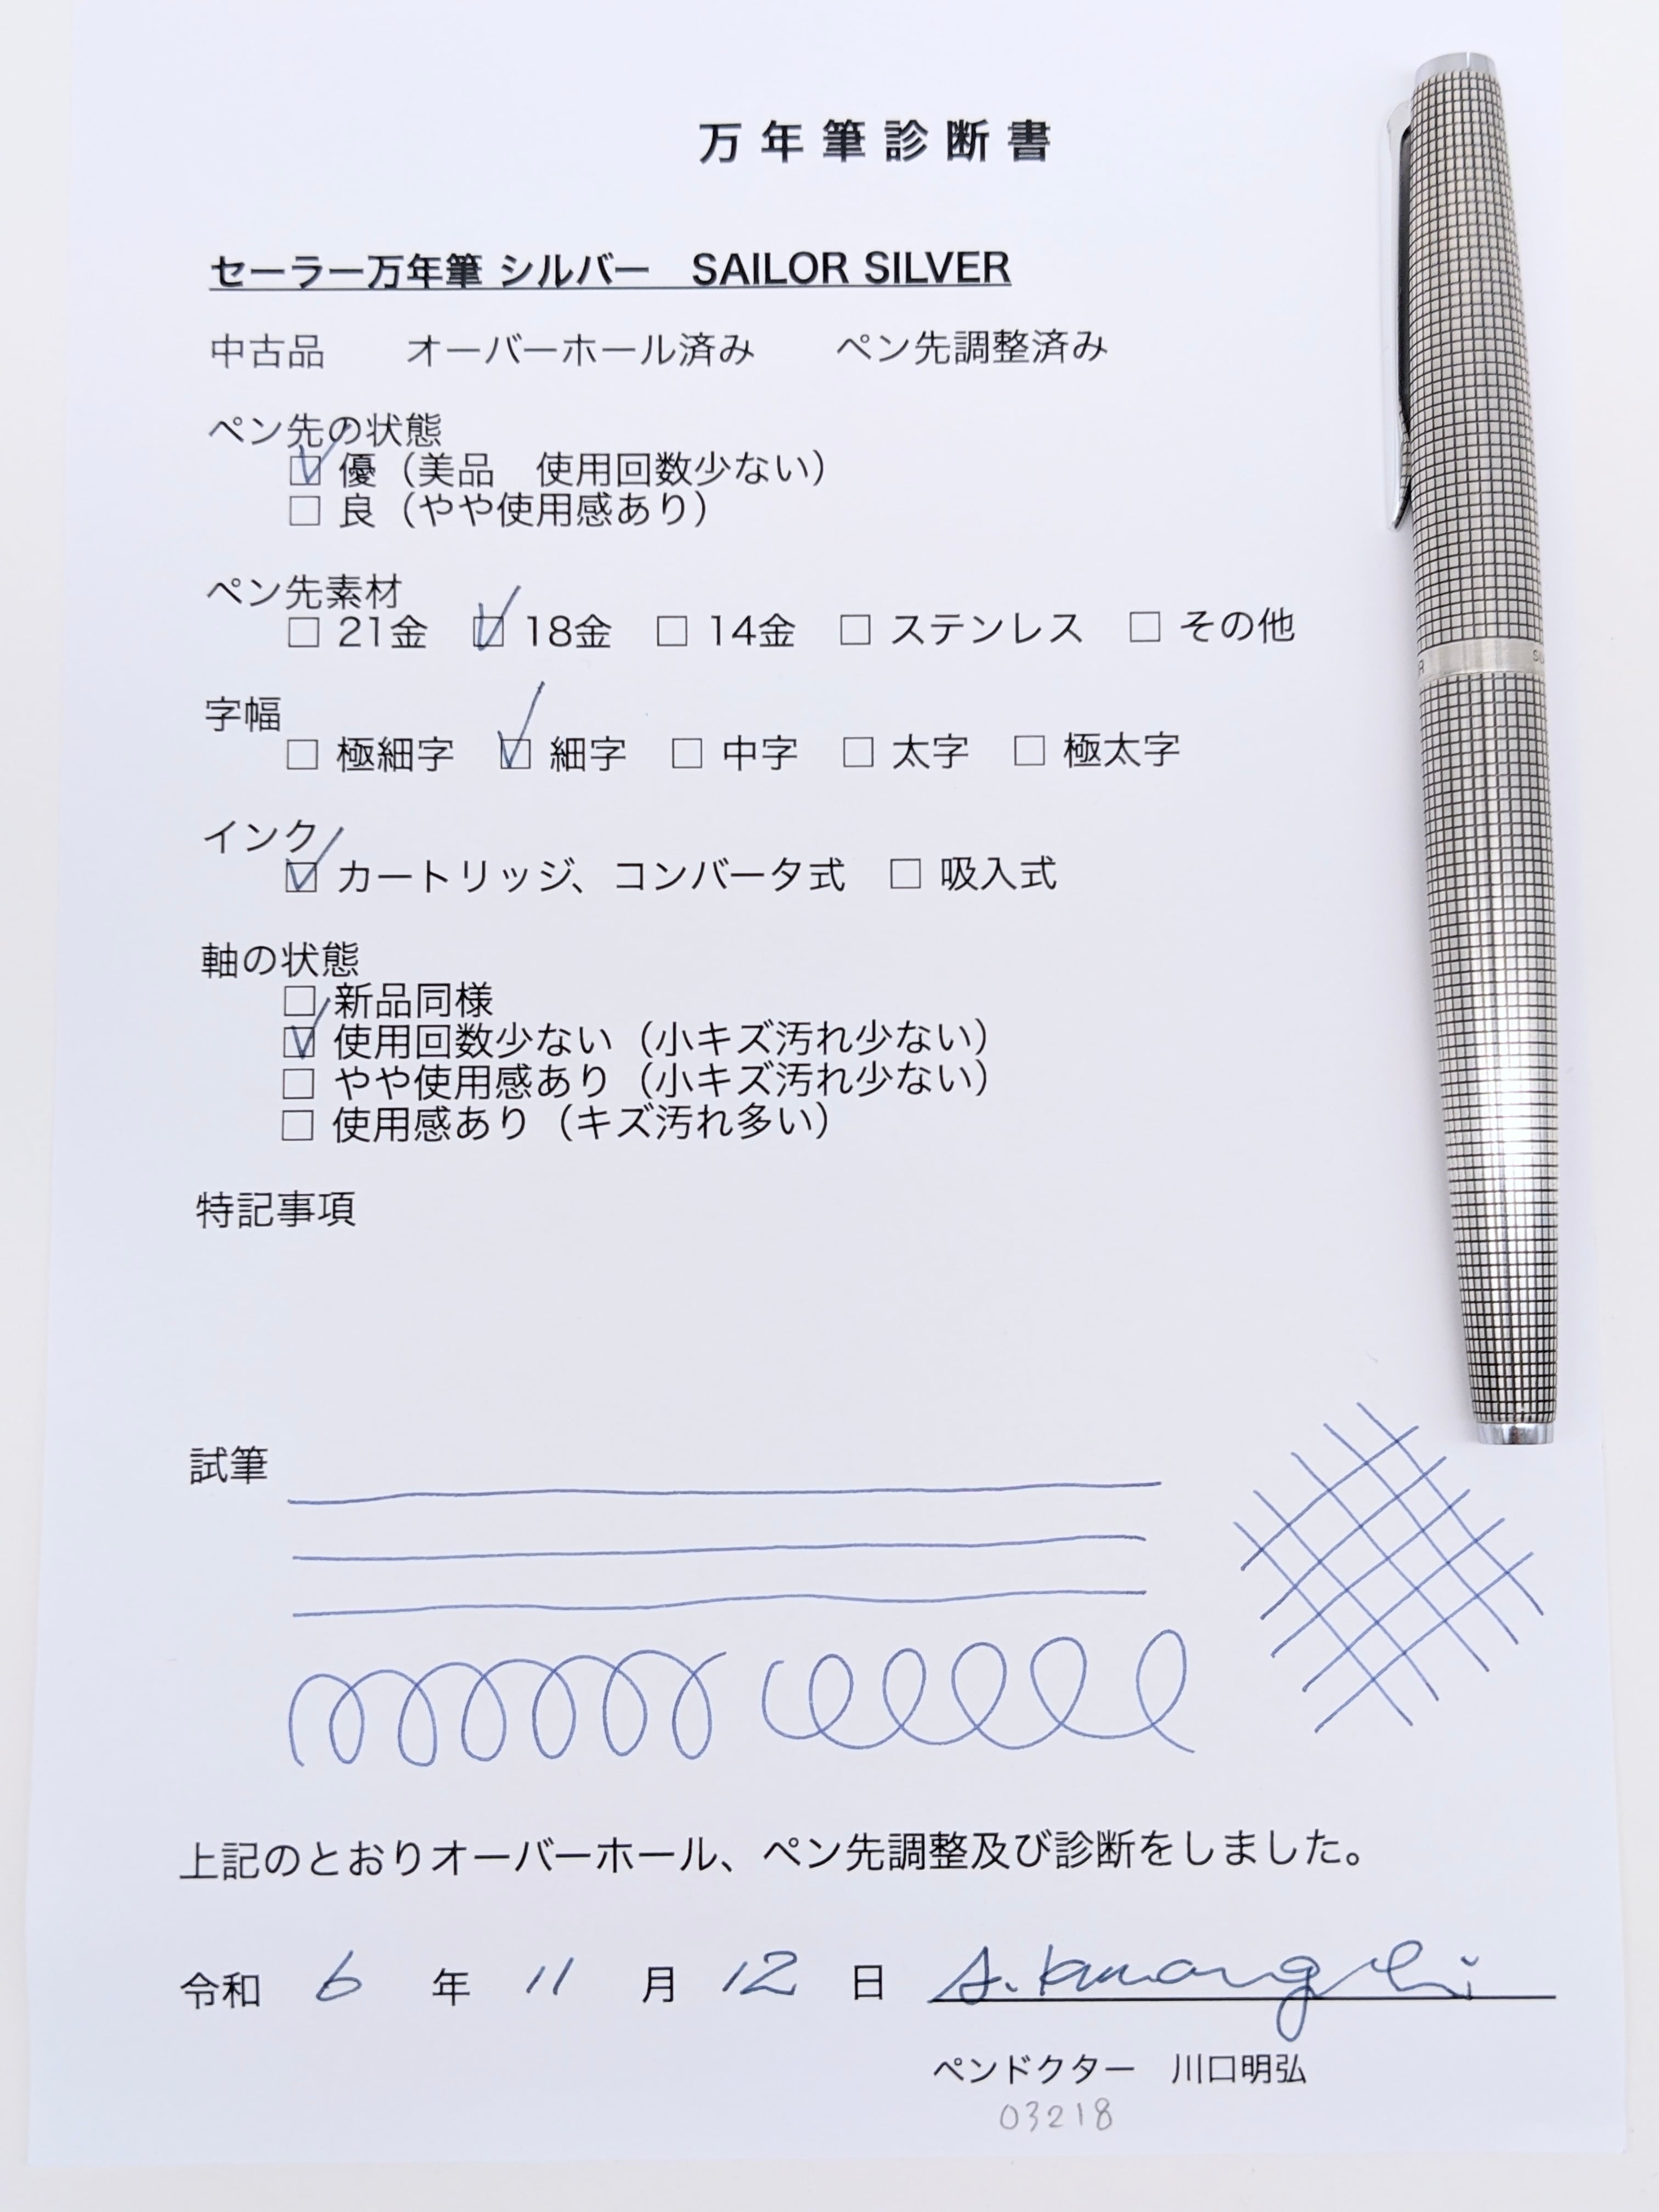 万年筆診断書
セーラー万年筆 シルバー　SAILOR SILVER
中古品　オーバーホール済み　ペン先調整済み
ペン先の状態
☑ 優（美品　使用回数少ない）
☐ 良（やや使用感あり）
ペン先素材
☐ 21金　☑ 18金　☐ 14金　☐ ステンレス　☐ その他
字幅
☐ 極細字　☑ 細字　☐ 中字　☐ 太字　☐ 極太字
インク
☑ カートリッジ、コンバータ式　☐ 吸入式
軸の状態
☐ 新品同様
☑ 使用回数少ない（小キズ汚れ少ない）
☐ やや使用感あり（小キズ汚れ少ない）
☐ 使用感あり（キズ汚れ多い）
特記事項
試筆
上記のとおりオーバーホール、ペン先調整及び診断をしました。
令和 6 年 11 月 12 日 A. Kawaguchi
ペンドクター　川口明弘
03218